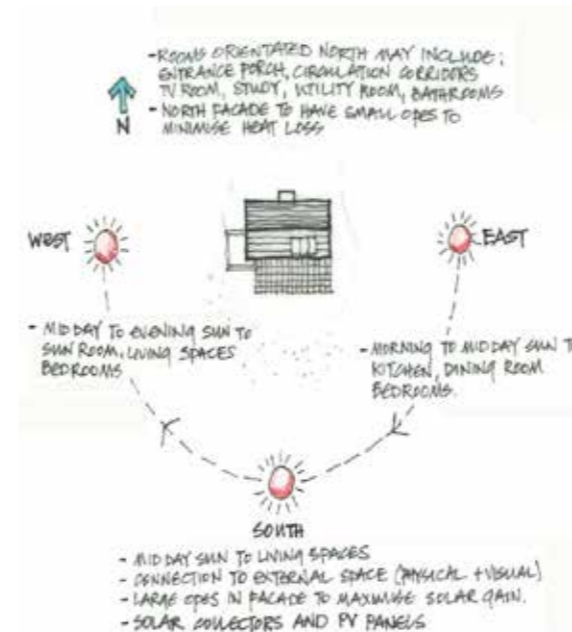 - ROOMS ORIENTATED NORTH MAY INCLUDE;
ENTRANCE PORCH, CIRCULATION CORRIDORS
TV ROOM, STUDY, UTILITY ROOM, BATHROOMS
- NORTH FACADE TO HAVE SMALL OPES TO
MINIMISE HEAT LOSS
N
WEST
EAST
- MIDDAY TO EVENING SUN TO
SUN ROOM, LIVING SPACES
BEDROOMS
- MORNING TO MIDDAY SUN T
KITCHEN, DINING ROOM
BEDROOMS.
SOUTH
- MIDDAY SUN TO LIVING SPACES
- CONNECTION TO EXTERNAL SPACE (PHYSICAL + VISUAL)
- LARGE OPES IN FACADE TO MAXIMISE SOLAR GAIN.
- SOLAR COLLECTORS AND PV PANELS